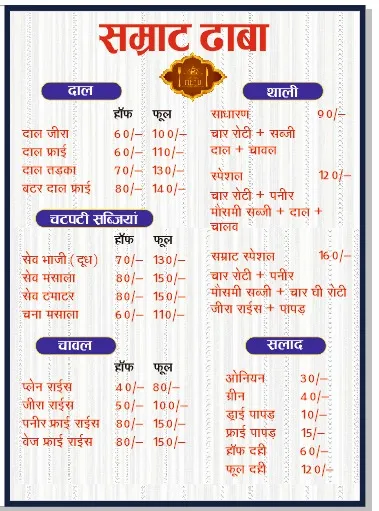 सम्राट ढाबा
दाल
हॉफ फूल
दाल जीरा 60/- 100/-
दाल फ्राई 60/- 110/-
दाल तड़का 70/- 130/-
बटर दाल फ्राई 80/- 140/-
चटपटी सब्जियां
हॉफ फूल
सेव भाजी (दूध) 70/- 130/-
सेव मसाला 80/- 150/-
सेव टमाटर 80/- 150/-
चना मसाला 60/- 110/-
चावल
हॉफ फूल
प्लेन राईस 40/- 80/-
जीरा राईस 50/- 100/-
पनीर फ्राई राईस 80/- 150/-
वेज फ्राई राईस 80/- 150/-
थाली
साधारण 90/-
चार रोटी + सब्जी
दाल + चावल
स्पेशल 120/-
चार रोटी + पनीर
मोसमी सब्जी + दाल +
चालव
सम्राट स्पेशल 160/-
चार रोटी + पनीर
मोसमी सब्जी + चार घी रोटी
जीरा राईस + पापड़
सलाद
ओनियन 30/-
ग्रीन 40/-
ड्राई पापड़ 10/-
फ्राई पापड़ 15/-
हॉफ दही 60/-
फूल दही 120/-